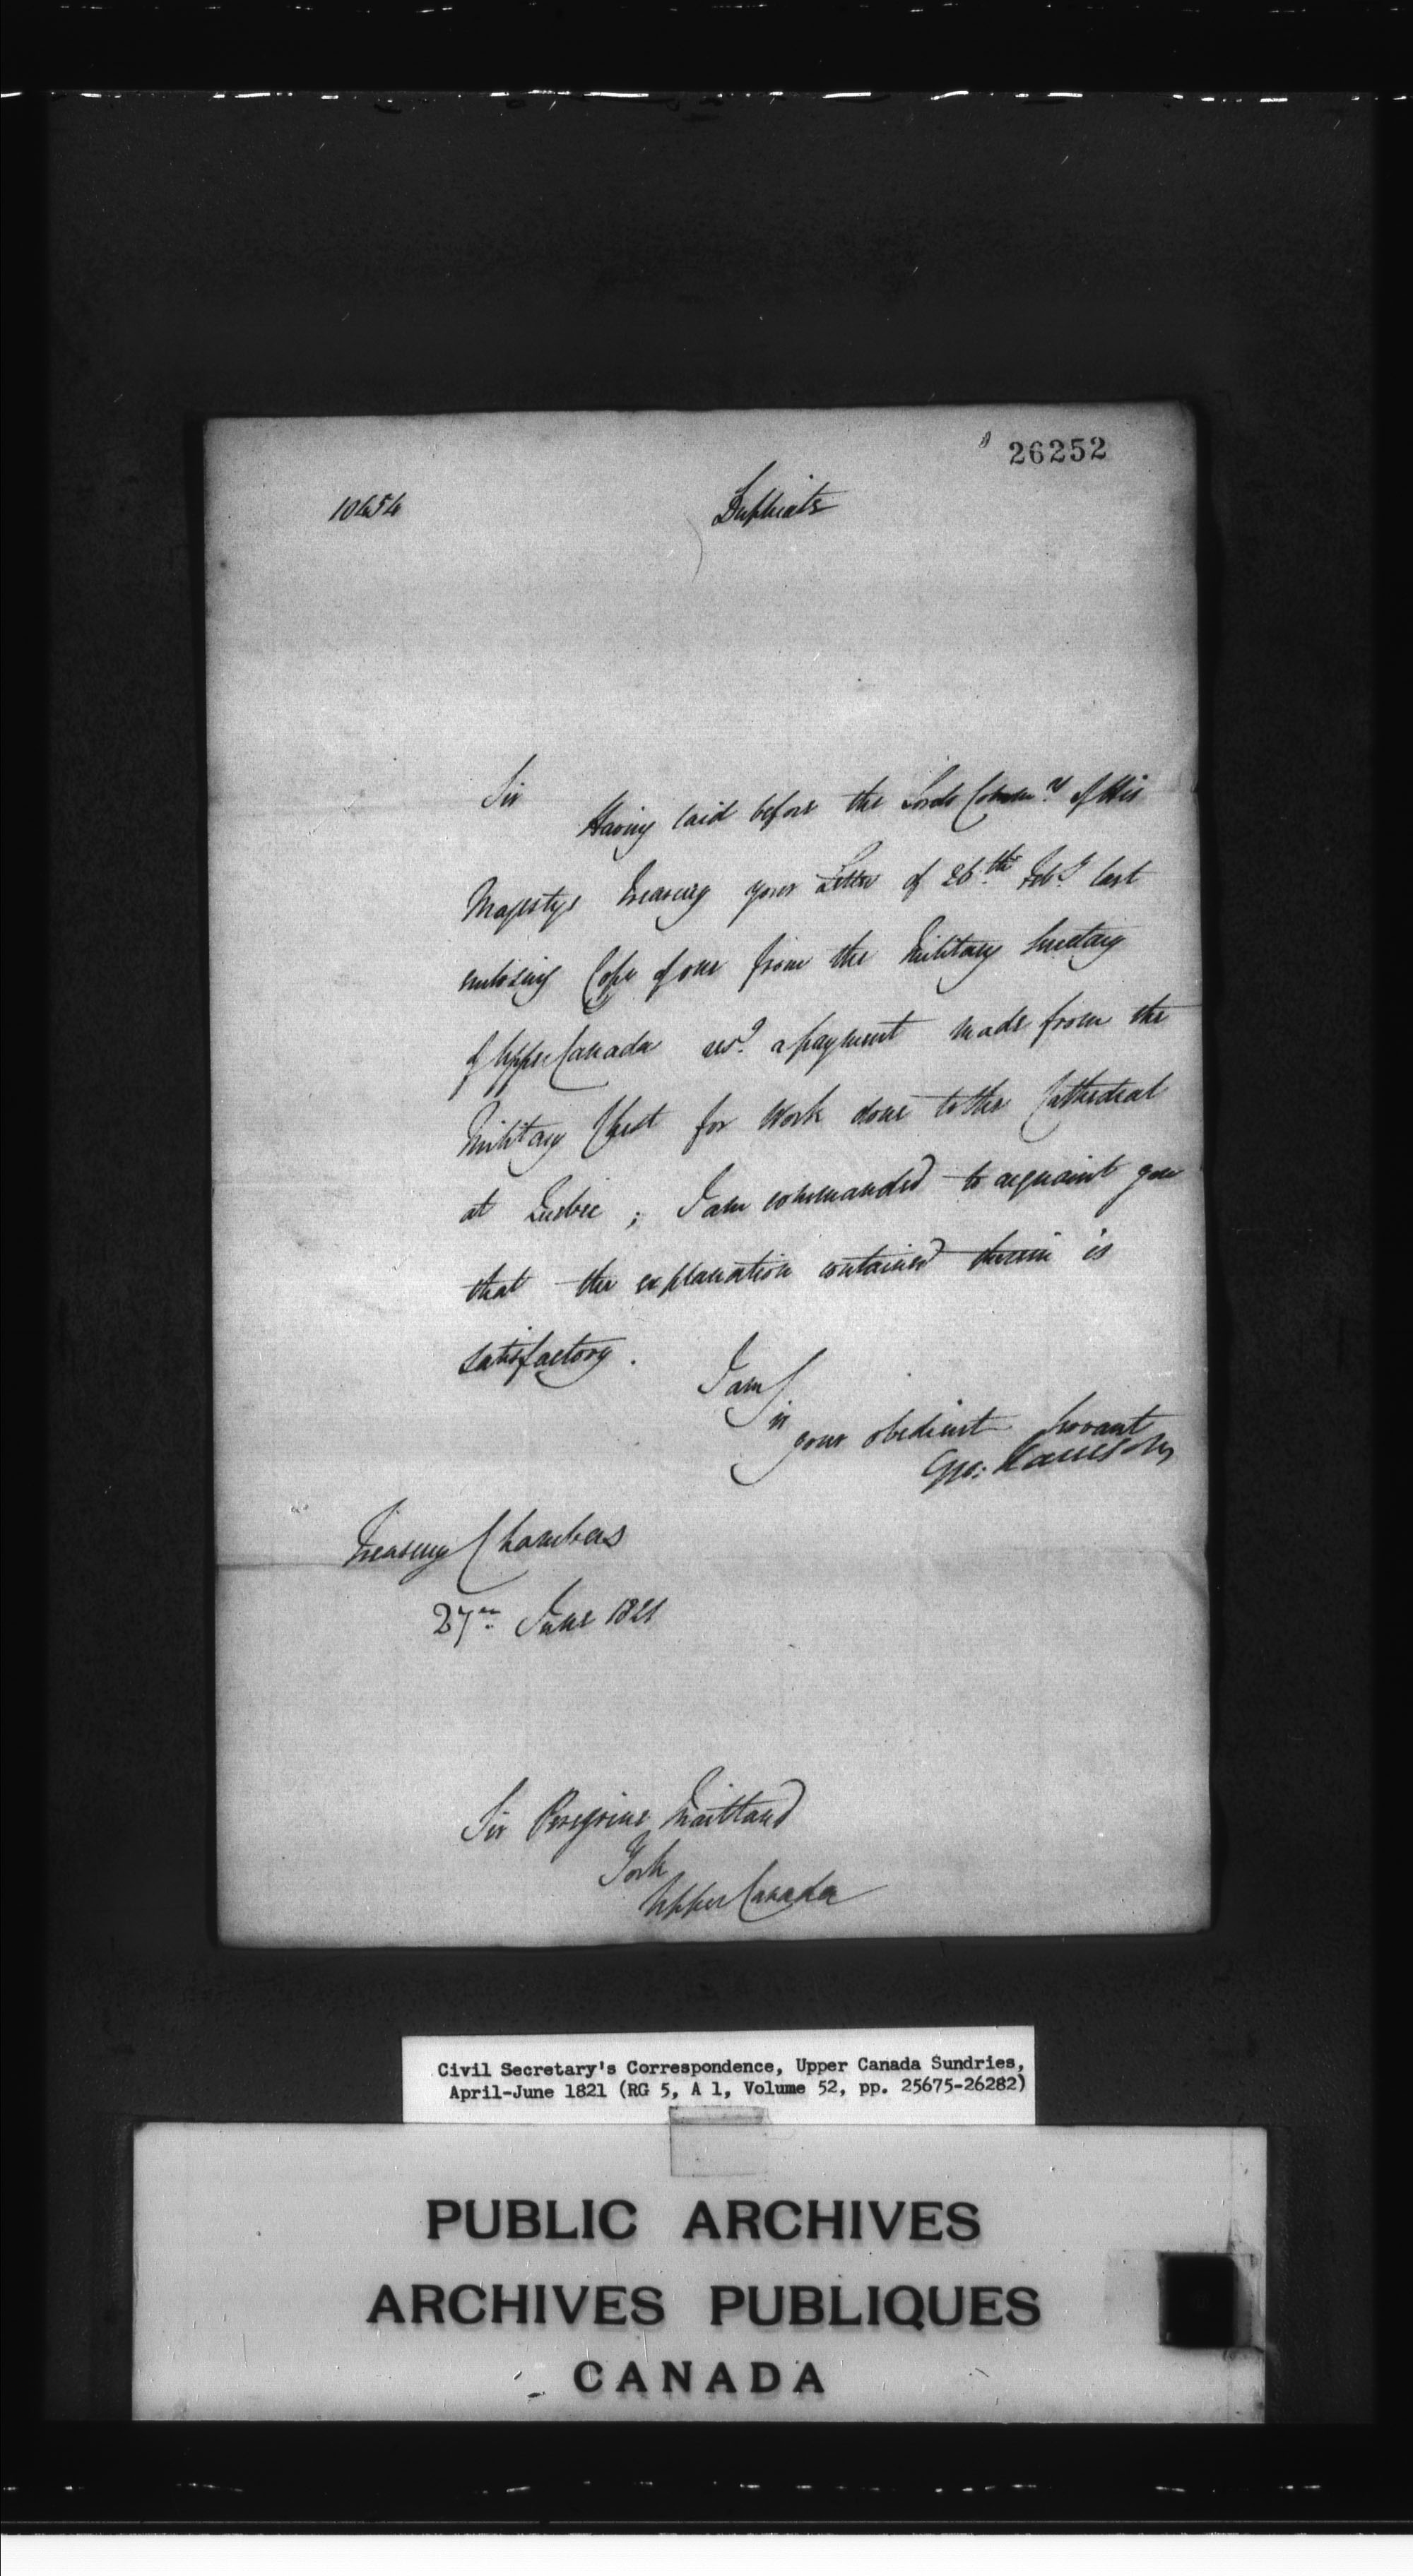 26252
10454
Duplicate
Sir
Having laid before the Lords Comm.rs of His
Majestys Treasury your Letter of 26.th Feb.y last
enclosing Copy of one from the Military Secretary
of Upper Canada res.g a payment made from the
Military Chest for Work done to the Cathedral
at Quebec ; I am commanded to acquaint you
that the explanation contained therein is
satisfactory.
I am
Sir
your obedient Servant
Geo: Harrison
Treasury Chambers
27th June 1821
Sir Peregrine Maitland
York
Upper Canada
Civil Secretary's Correspondence, Upper Canada Sundries,
April-June 1821 (RG 5, A 1, Volume 52, pp. 25675-26282)
PUBLIC ARCHIVES
ARCHIVES PUBLIQUES
CANADA